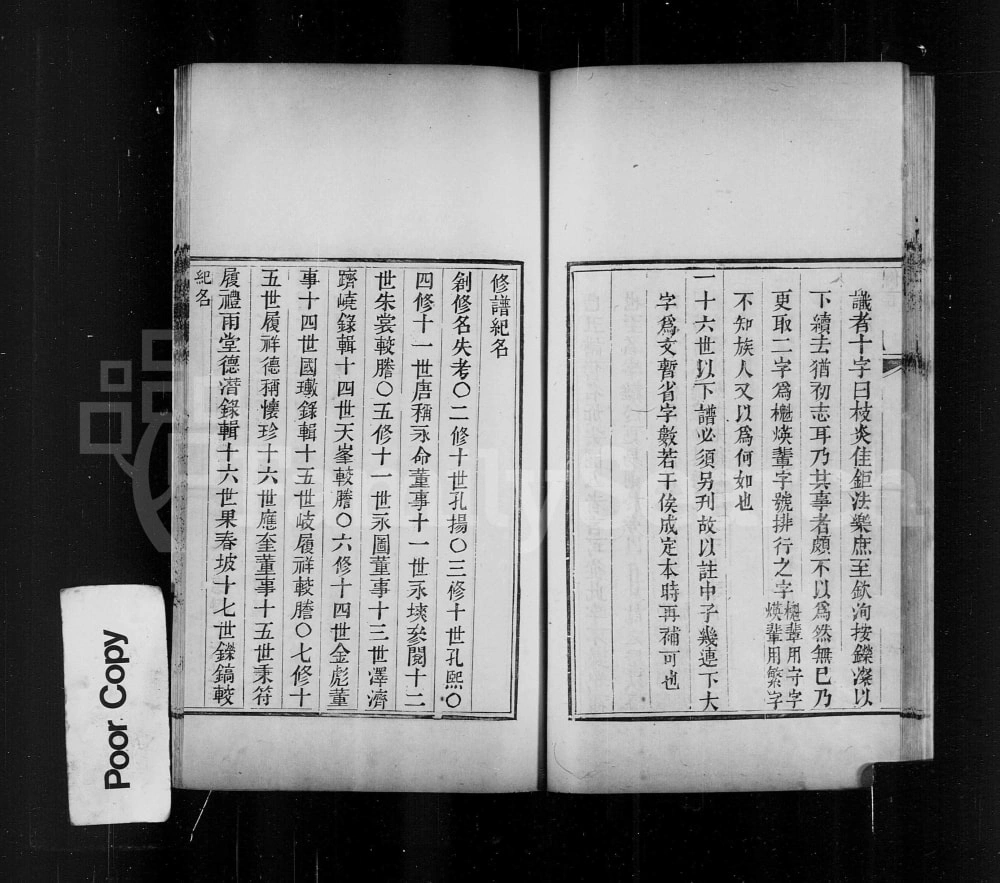 識者十字曰枝炎佳鉅法樂庶至欽洵按鑠濼以
下續去猶初志耳乃其事者頗不以為然無已乃
更取二字為樾煐輩字號排行之字樾輩用守字
煐輩用繁字
不知族人又以為何如也
一十六世以下譜必須另刊故以註中子幾連下大
字為文暫省字數若干俟成定本時再補可也
修譜紀名
創修名失考〇二修十世孔揚〇三修十世孔熙〇
四修十一世唐稱永命董事十一世永埉參閱十二
世朱裳較謄〇五修十一世永圖董事十三世澤濟
躋嶢錄輯十四世天峯較謄〇六修十四世金彪董
事十四世國璥錄輯十五世岐履祥較謄〇七修十
五世履祥德稱懷珍十六世應奎董事十五世秉符
履禮雨堂德潛錄輯十六世果春坡十七世鑠鎬較
紀名
Poor Copy